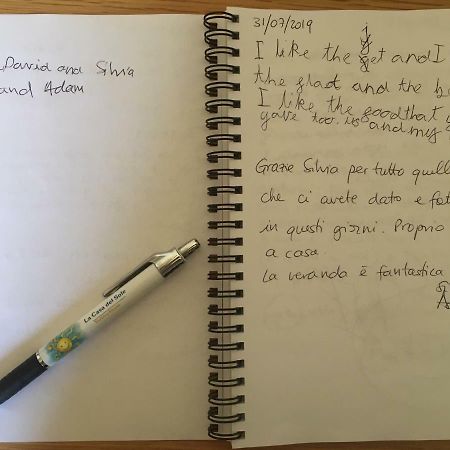 David and Silvia
and Adam
31/07/2019
I like the get and I
the glad and the b
I like the food that
gave too us and my
Grazie Silvia per tutto quell
che ci avete dato e fat
in questi giorni. Proprio
a casa.
La veranda è fantastica
La Casa del Sole